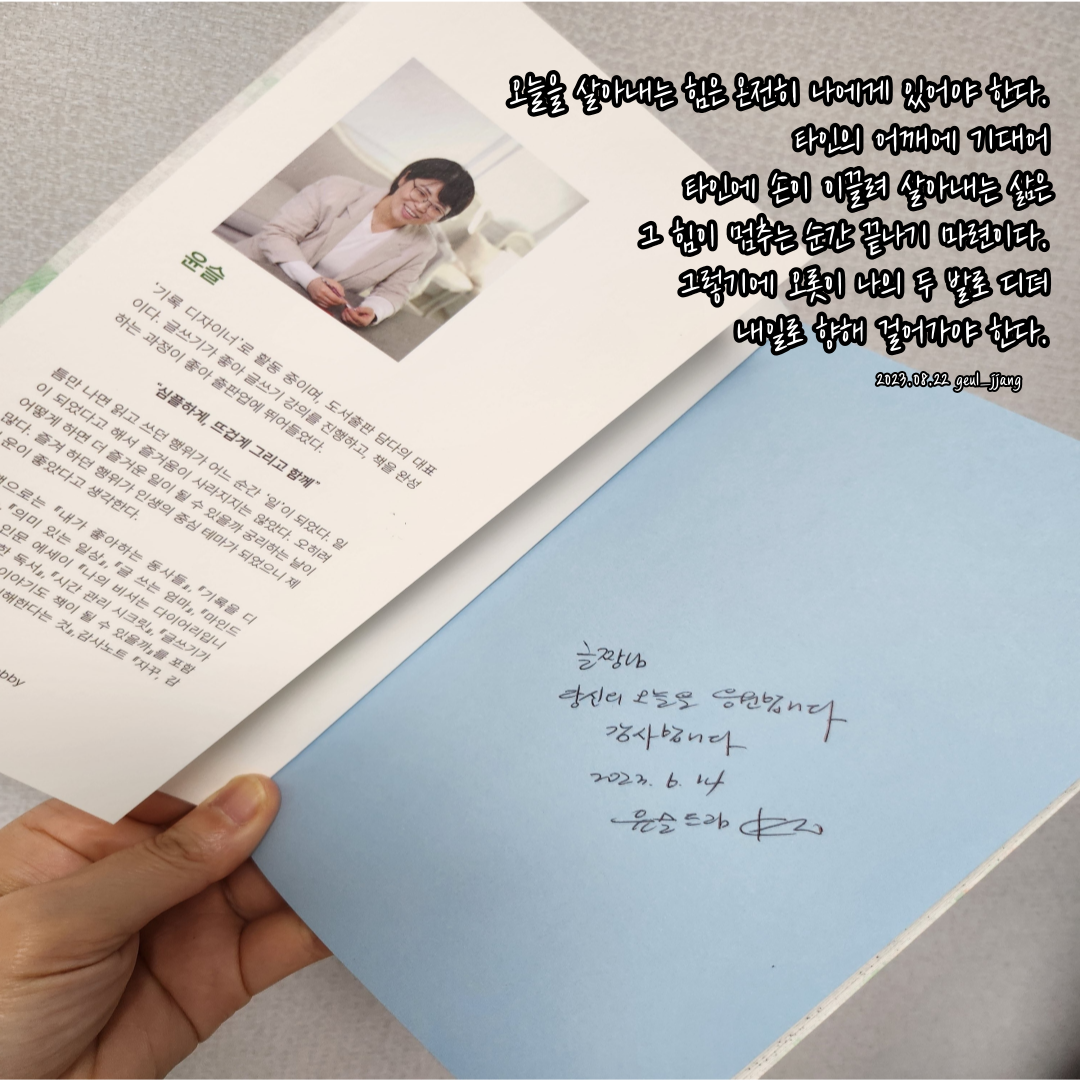 오늘을 살아내는 힘은 온전히 나에게 있어야 한다.
타인의 어깨에 기대어
타인에 손이 이끌려 살아내는 삶은
그 힘이 멈추는 순간 끝나기 마련이다.
그렇기에 오롯이 나의 두 발로 디뎌
내일로 향해 걸어가야 한다.
2023.08.22 geul_jjang
윤슬
'기록 디자이너'로 활동 중이며, 도서출판 담다의 대표
이다. 글쓰기가 좋아 글쓰기 강의를 진행하고, 책을 완성
하는 과정이 좋아 출판업에 뛰어들었다.
"심플하게, 뜨겁게 그리고 함께"
틈만 나면 읽고 쓰던 행위가 어느 순간 '일'이 되었다. 일
이 되었다고 해서 즐거움이 사라지지는 않았다. 오히려
어떻게 하면 더 즐거운 일이 될 수 있을까 궁리하는 날이
많다. 즐겨 하던 행위가 인생의 중심 테마가 되었으니 제
운이 좋았다고 생각한다.
으로는 『내가 좋아하는 동사들』, 『기록을 디
『의미 있는 일상』, 『글 쓰는 엄마』, 『마인드
인문 에세이 『나의 비서는 다이어리입니
한 독서』, 『시간 관리 시크릿』, 『글쓰기가
이야기도 책이 될 수 있을까』를 포함
해한다는 것』, 감사노트 『자꾸, 감
bby
글짱님
당신의 오늘을 응원합니다
감사합니다
2023. 6. 14
윤슬 드림